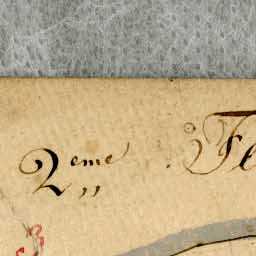 2,, eme Fe